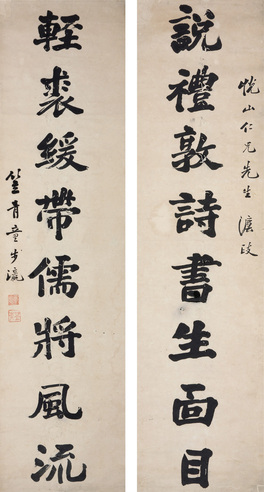 說禮敦詩書生面目
悅山仁兄先生 漚政
輕裘緩帶儒將風流
竺青童步瀛